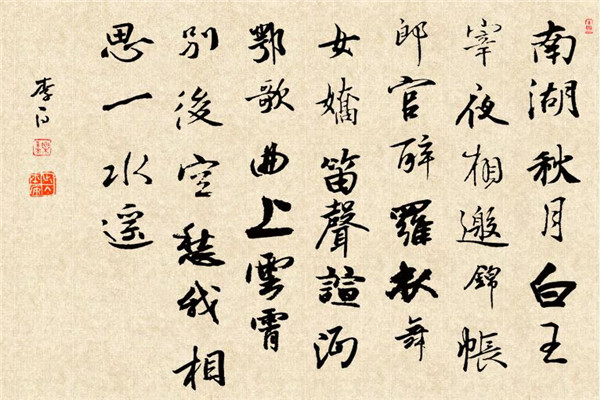 南湖秋月白王
宰夜相邀錦帳
郎官醉羅衣舞
女嬌笛聲諠沔
鄂歌曲上雲霄
別後空愁我相
思一水遥
李白